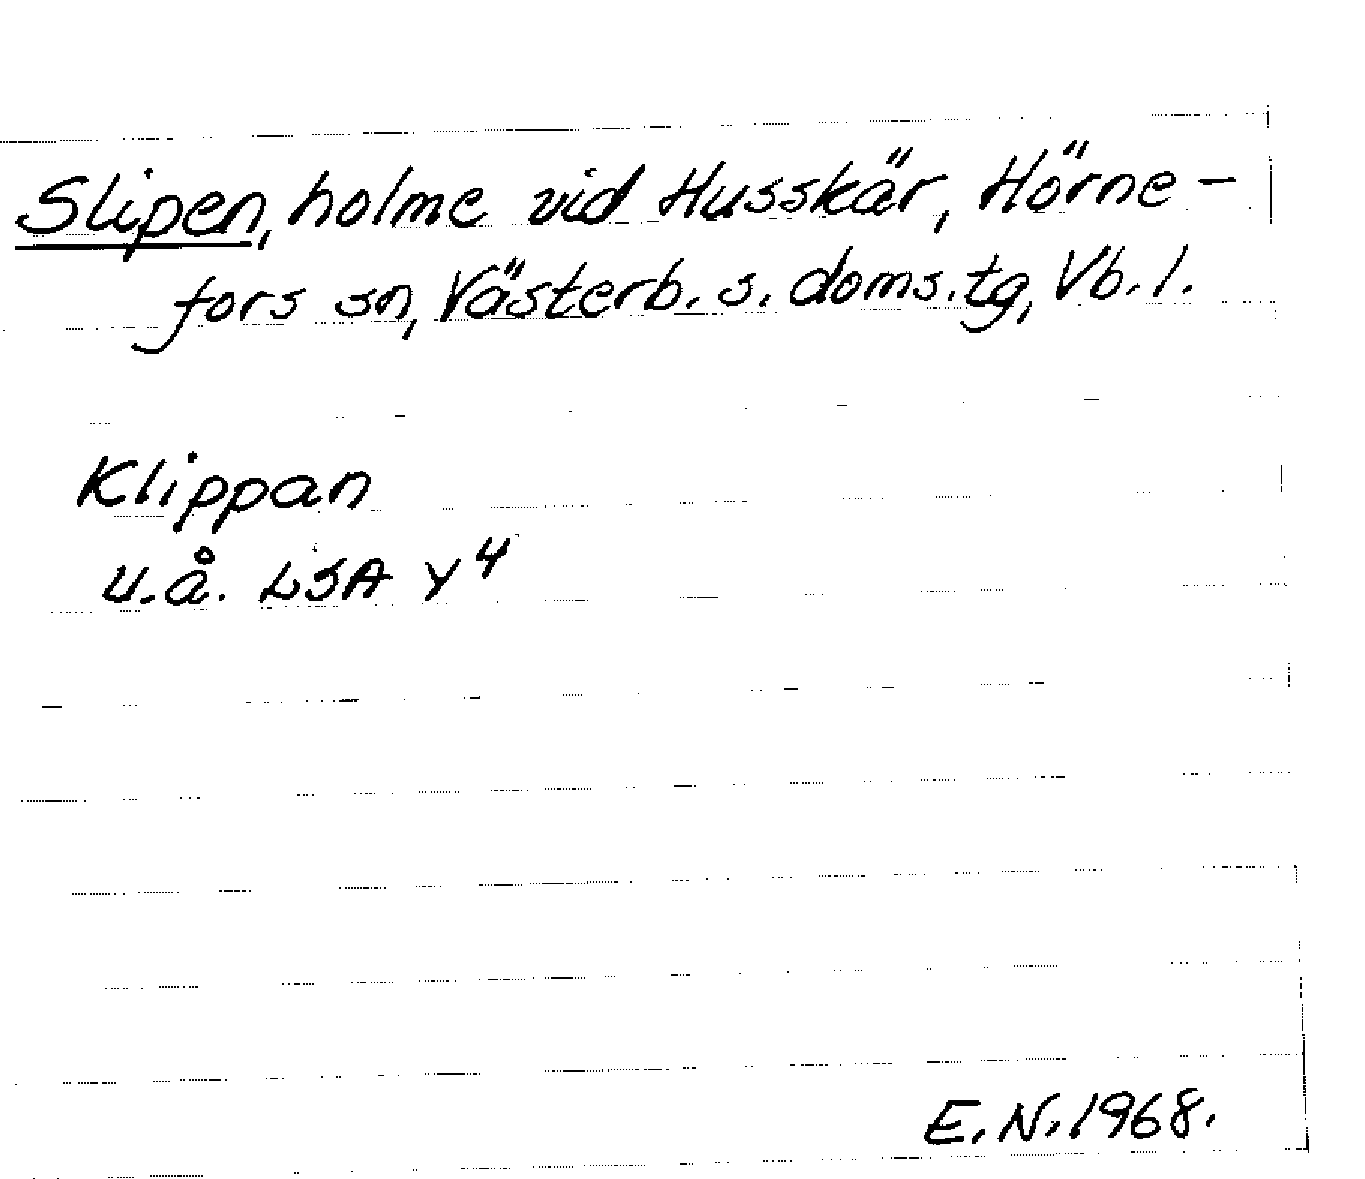 Slipen, holme vid Husskär, Hörne-
fors sn, Västerb. s. doms. tg, Vb. l.
Klippan
u. å. LSA Y4
E. N. 1968.